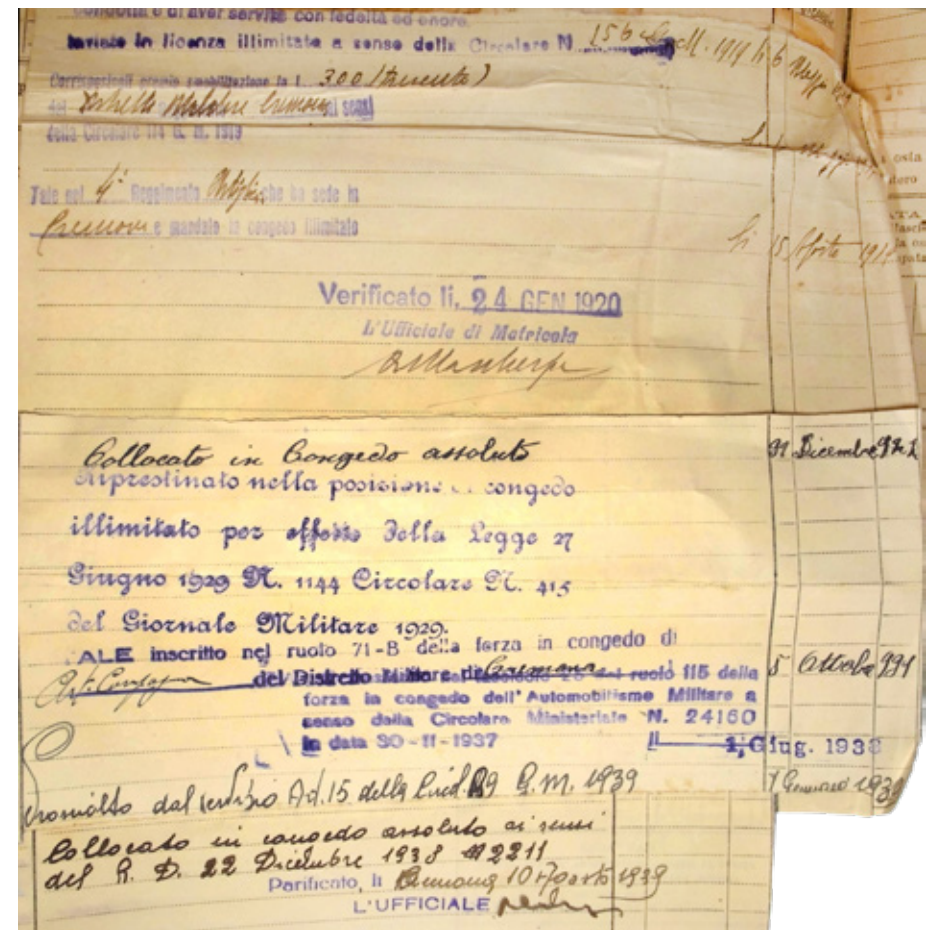 condotta e di aver servito con fedeltà ed onore.
Inviato in licenza illimitata a senso della Circolare N
Corrispostogli premio smobilitazione in L. 300 (trecento)
dal Cremona ai sensi
della Circolare 114 G. M. 1919
Tale nel 4° Reggimento che ha sede in
Cremona e mandato in congedo illimitato
li 15 Agosto 191
Verificato li, 24 GEN 1920
L'Ufficiale di Matricola
Collocato in Congedo assoluto
31 Dicembre
Ripristinato nella posizione di congedo
illimitato per effetto della Legge 27
Giugno 1929 N. 1144 Circolare N. 415
del Giornale Militare 1929.
TALE inscritto nel ruolo 71-B della forza in congedo di
del Distretto Militare di Cremona ruolo 115 della
5 Ottobre 931
forza in congedo dell'Automobilismo Militare a
senso della Circolare Ministeriale N. 24160
in data 30-11-1937
1, Giug. 1938
dal servizio Ad. 15 della G.M. 1939
1 Gennaio 1939
Collocato in congedo assoluto ai sensi
del R. D. 22 Dicembre 1938 n 2211
Parificato, li Cremona 10 Agosto 1939
L'UFFICIALE